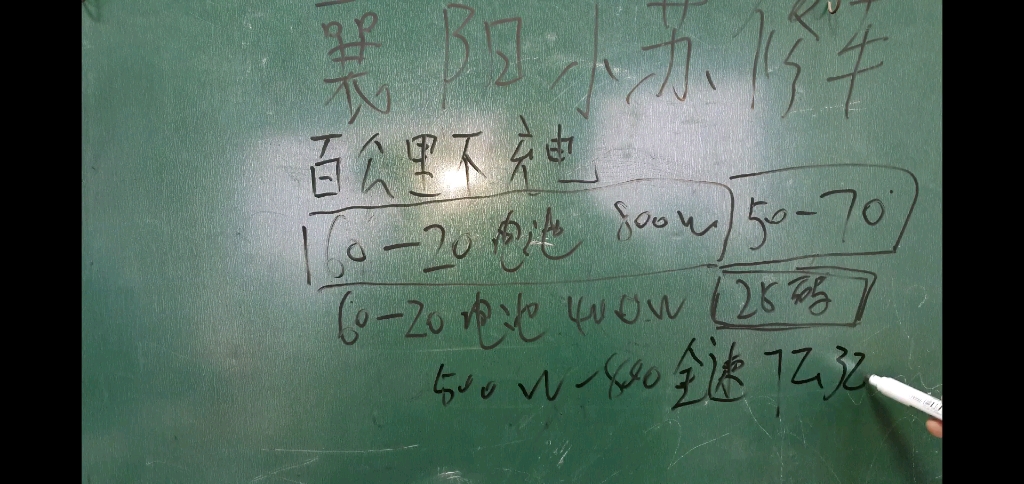 襄阳小苏修车
百公里不充电
60-20电池 800w 50-70
60-20电池 400W 25码
500W-800全速